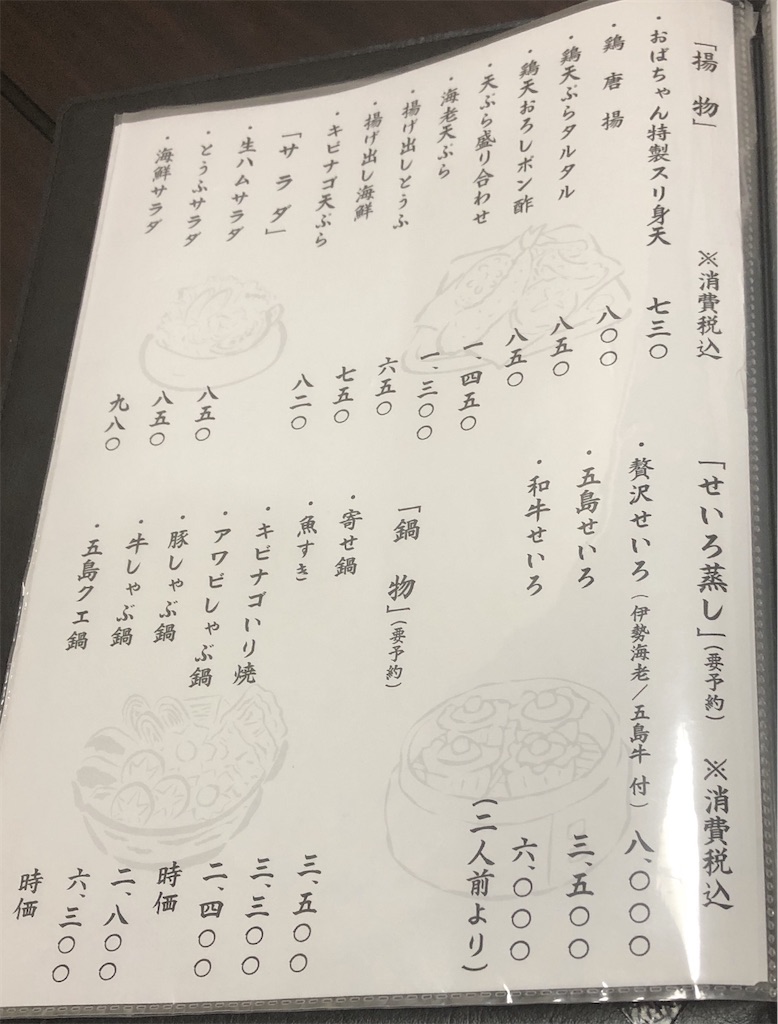 「揚 物」 ※消費税込
・おばちゃん特製スリ身天 七三〇
・鶏 唐 揚 八〇〇
・鶏天ぷらタルタル 八五〇
・鶏天おろしポン酢 八五〇
・天ぷら盛り合わせ 一、四五〇
・海老天ぷら 一、三〇〇
・揚げ出しとうふ 六五〇
・揚げ出し海鮮 七五〇
・キビナゴ天ぷら 八二〇
「サ ラ ダ」
・生ハムサラダ 八五〇
・とうふサラダ 八五〇
・海鮮サラダ 九八〇
「せいろ蒸し」(要予約) ※消費税込
・贅沢せいろ(伊勢海老/五島牛 付) 八、〇〇〇
・五島せいろ 三、五〇〇
・和牛せいろ 六、〇〇〇
「鍋 物」(要予約) (二人前より)
・寄せ鍋 三、五〇〇
・魚すき 三、三〇〇
・キビナゴいり焼 二、四〇〇
・アワビしゃぶ鍋 時価
・豚しゃぶ鍋 二、八〇〇
・牛しゃぶ鍋 六、三〇〇
・五島クエ鍋 時価